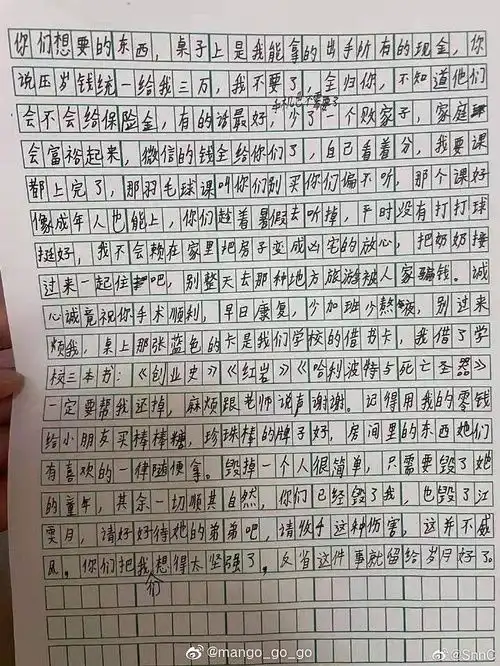 你们想要的东西，桌子上是我能拿的出手所有的现金，你
说压岁钱统一给我三万，我不要了，全归你，不知道他们
手机也不需要了
会不会给保险金，有的话最好，少了一个败家子，家庭
会富裕起来，微信的钱全给你们了，自己看着分，我要课
都上完了，那羽毛球课叫你们别买你们偏不听，那个课好
像成年人也能上，你们趁着暑假去听掉，平时没有打打球
挺好，我不会赖在家里把房子变成凶宅的放心，把奶奶接
过来一起住吧，别整天去那种地方旅游被人家骗钱。诚
心诚意祝你手术顺利，早日康复，少加班少熬夜，别过来
烦我，桌上那张蓝色的卡是我们学校的借书卡，我借了学
校三本书：《创业史》《红岩》《哈利波特与死亡圣器》
一定要帮我还掉，麻烦跟老师说声谢谢。记得用我的零钱
给小朋友买棒棒糖，珍珠棒的牌子好，房间里的东西她们
有喜欢的一律随便拿。毁掉一个人很简单，只需要毁了她
的童年，其余一切顺其自然，你们已经毁了我，也毁了江
雯月，请好好待她的弟弟吧，请收手这种伤害，这并不威
风，你们把我们想得太坚强了，反省这件事就留给岁月好了。
@mango_go_go
@SnnC